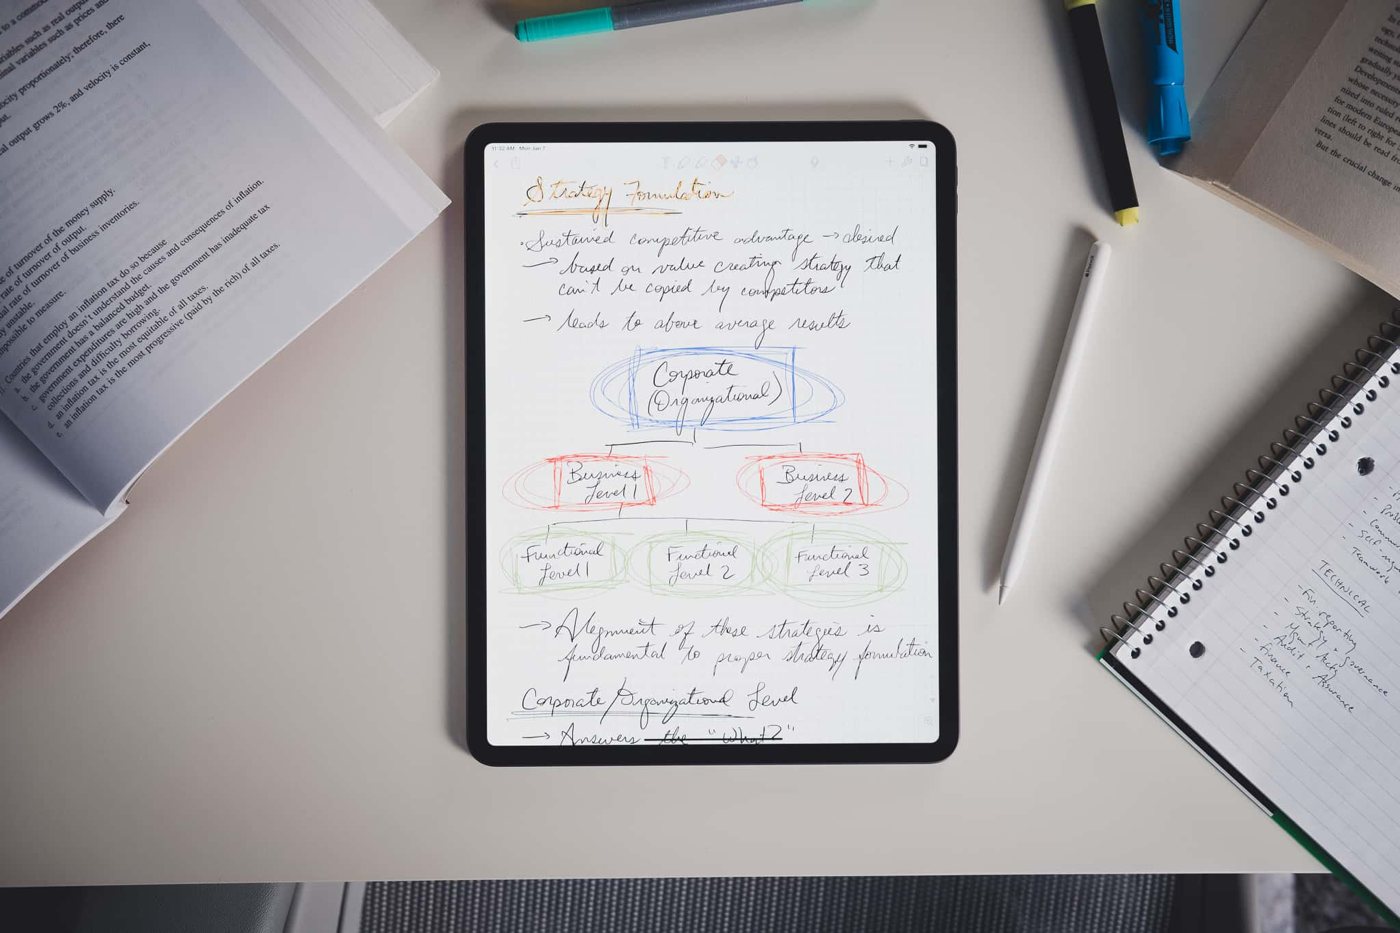 11:32 AM Mon Jan 7
Strategy Formulation
· Sustained competitive advantage → desired
→ based on value creating strategy that
can't be copied by competitors
→ leads to above average results
Corporate
(Organizational)
Business
Level 1
Business
Level 2
Functional
Level 1
Functional
Level 2
Functional
Level 3
→ Alignment of these strategies is
fundamental to proper strategy formulation
Corporate/Organizational Level
→ Answers the "What?"
ocity proportionately; therefore, there
output grows 2%, and velocity is constant,
rate of turnover of the money supply.
rate of turnover of output.
rate of turnover of business inventories.
Countries that employ an inflation tax do so because
the government doesn't understand the causes and consequences of inflation.
the government has a balanced budget.
government expenditures are high and the government has inadequate tax
collections and difficulty borrowing.
d. an inflation tax is the most equitable of all taxes.
e. an inflation tax is the most progressive (paid by the rich) of all taxes.
for modern
lines should be read
versa.
But the crucial change
- Teamwork
TECHNICAL
- Fin reporting
- Strategy + governance
- Mgmt Acctg
- Audit + Assurance
- Finance
- Taxation